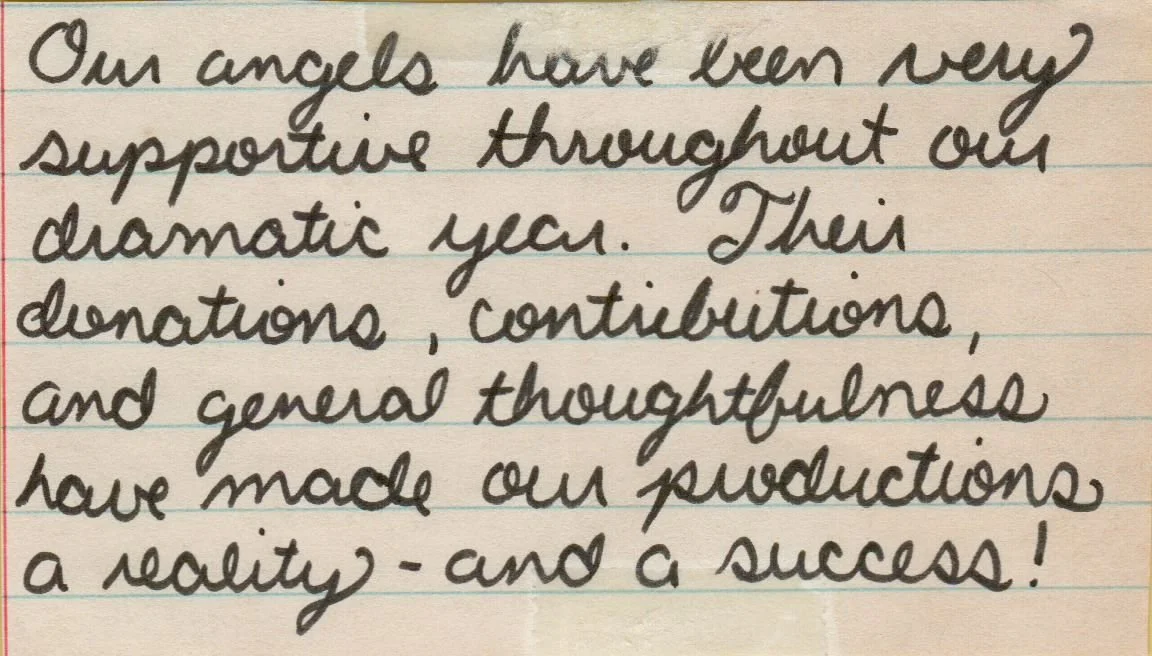 Our angels have been very
supportive throughout our
dramatic year. Their
donations, contributions,
and general thoughtfulness
have made our productions
a reality - and a success!